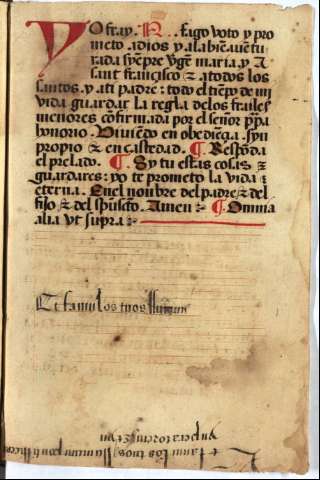 YO fray. N. Fago voto y pro
meto a dios y a la biē auētu
rada syēpre v̄gē maria. y A
sant francisco ⁊ a todos los
santos. y a ti padre: todo el tiēpo de mi
vida guardar la regla de los frailes
menores cōfirmada por el señor p̄p̄a
honorio. Viuiēdo en obediēçia. syn
propio ⁊ en castedad. ¶ Respōda
el prelado. ¶ Sy tu estas cosas
guardares: yo te prometo la vida
eterna. En el nonbre del padre ⁊ del
fijo ⁊ del sp̄u sc̄to. Amen: ¶ Omnia
alia vt supra
Et famulos tuos